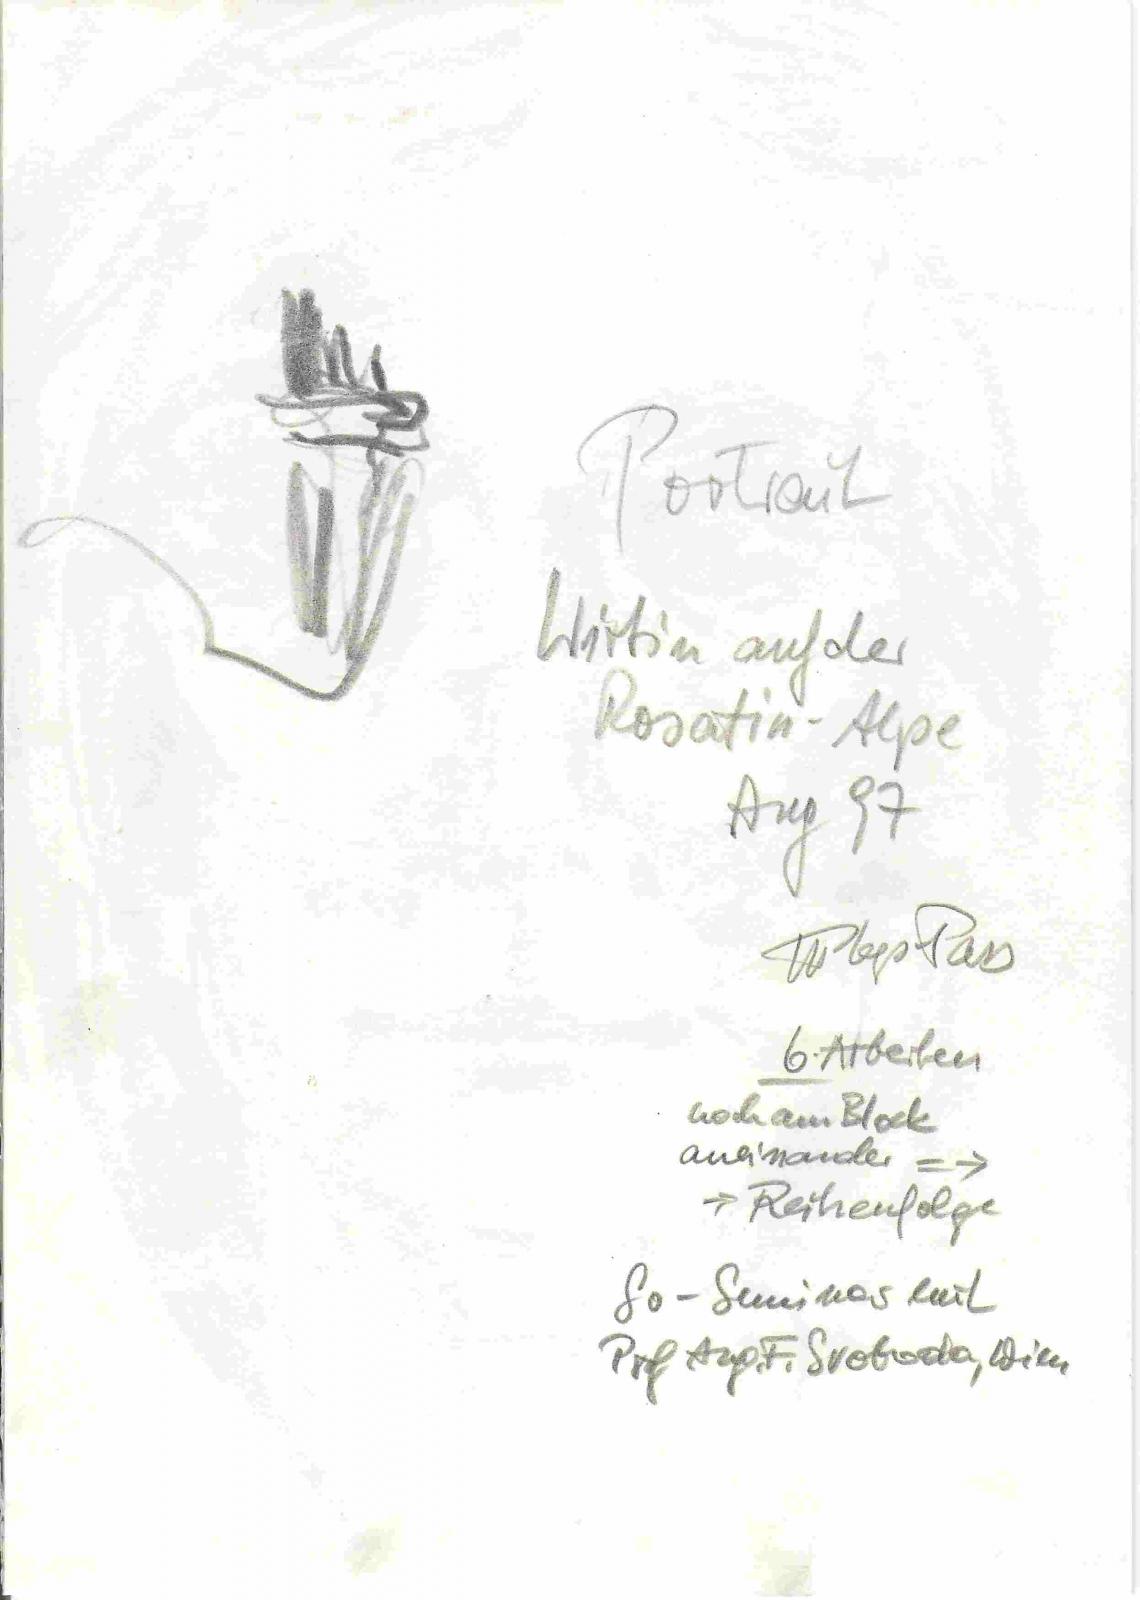 Portrait
Wirtin auf der
Rosatin-Alpe
Aug 97
6 Arbeiten
noch am Block
aneinander =>
→ Reihenfolge
So-Seminar mit
Prof Aug. F. Svoboda, Wien